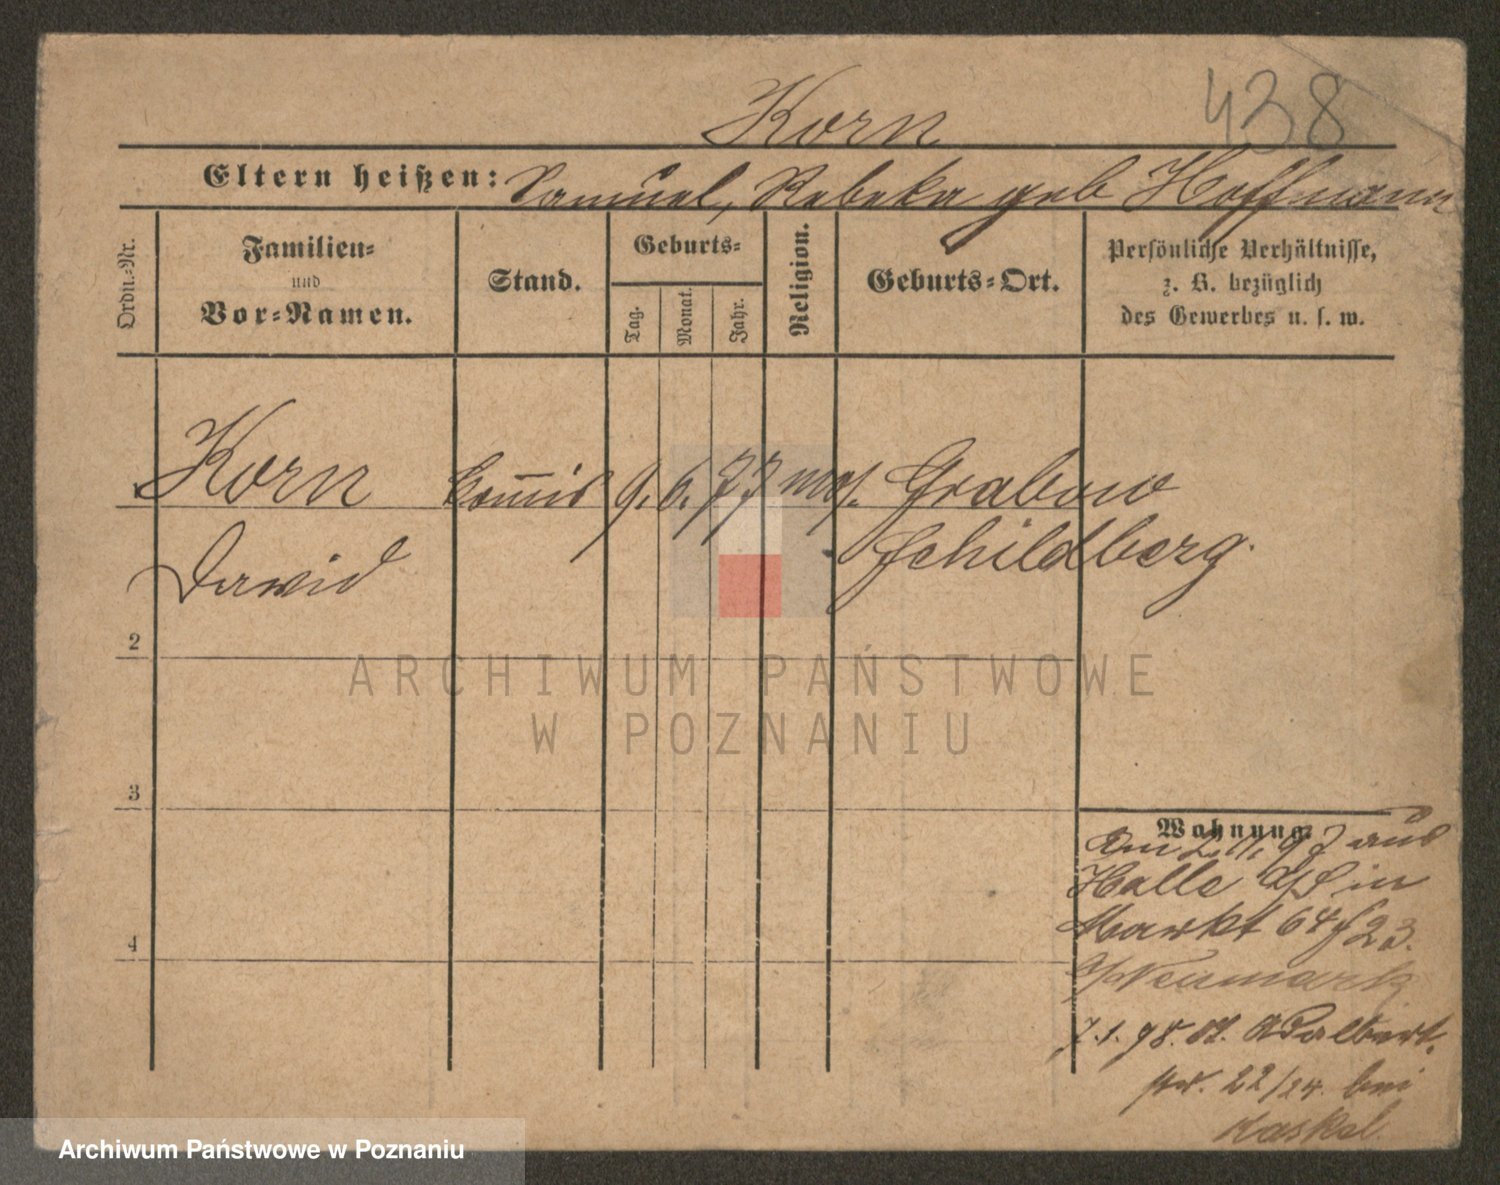 438
Korn
Eltern heißen: Samuel, Rebeka geb Hoffmann
Ordn.-Nr.
Familien-
und
Vor-Namen.
Stand.
Geburts-
Tag.
Monat.
Jahr.
Religion.
Geburts-Ort.
Persönliche Verhältnisse,
z. B. bezüglich
des Gewerbes u. s. w.
Korn Com̅is 9. 6. 77 mos. Grabow
Dawid Schildberg.
2
3
4
Wohnung.
Am 2. 11. 97 aus
Halle in
Markt 64 23.
Neumark
7. 1. 98. St. Adalbert-
str. 22/24. bei
Kaskel.
ARCHIWUM PAŃSTWOWE
W POZNANIU
Archiwum Państwowe w Poznaniu